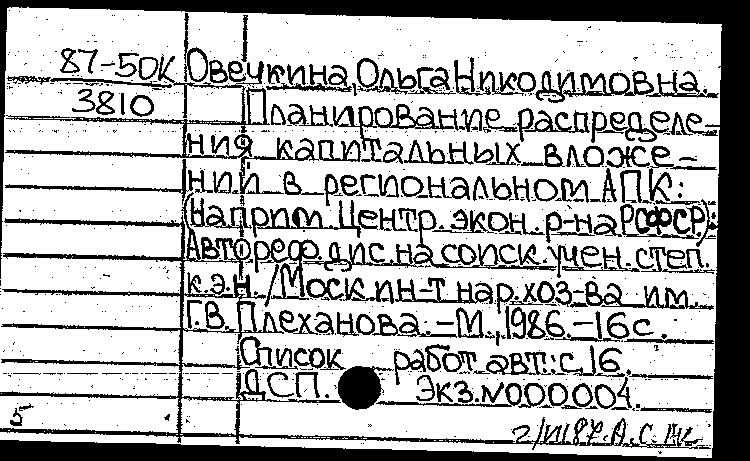 87-50К Овечкина, Ольга Никодимовна.
3810 Планирование распределе-
ния капитальных вложе-
ний в региональном АПК:
(На прим. Центр. экон. р-на РСФСР):
Автореф. дис. на соиск. учен. степ.
к.э.н. /Моск. ин-т нар. хоз-ва им.
Г.В. Плеханова. -М., 1986. -16 с.
Список работ авт.: с. 16.
ДСП. Экз. N000004.
5